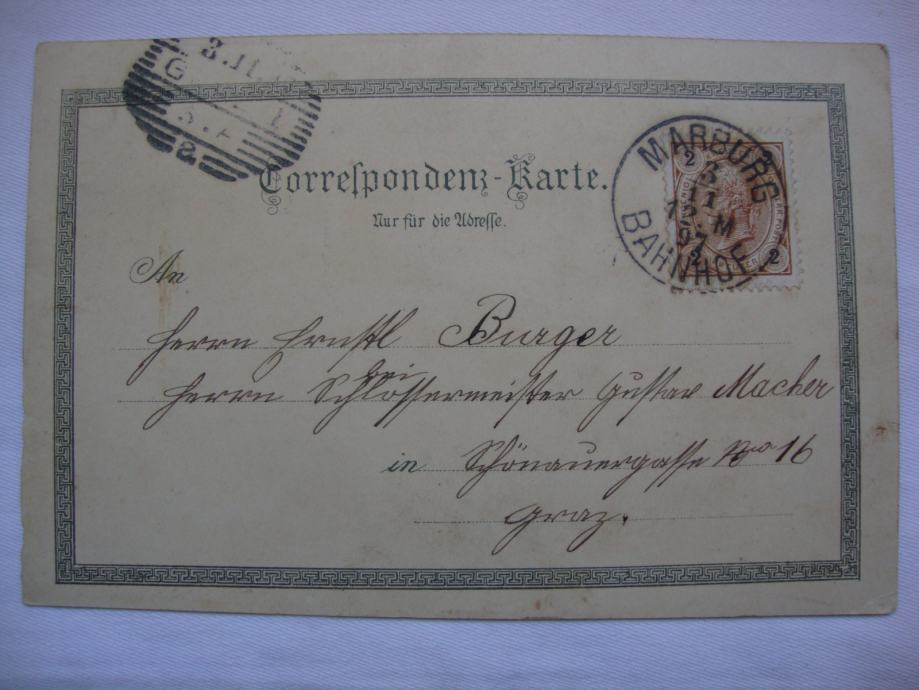 3.11.
G
a
Correspondenz-Karte.
Nur für die Adresse.
MARBURG
BAHNHOF
3
1
97
M
2
2
2
2
An
Herrn Ernstl Burger
bei
Herrn Schlossermeister Gustav Macher
in Schönauergasse Nro 16
Graz.